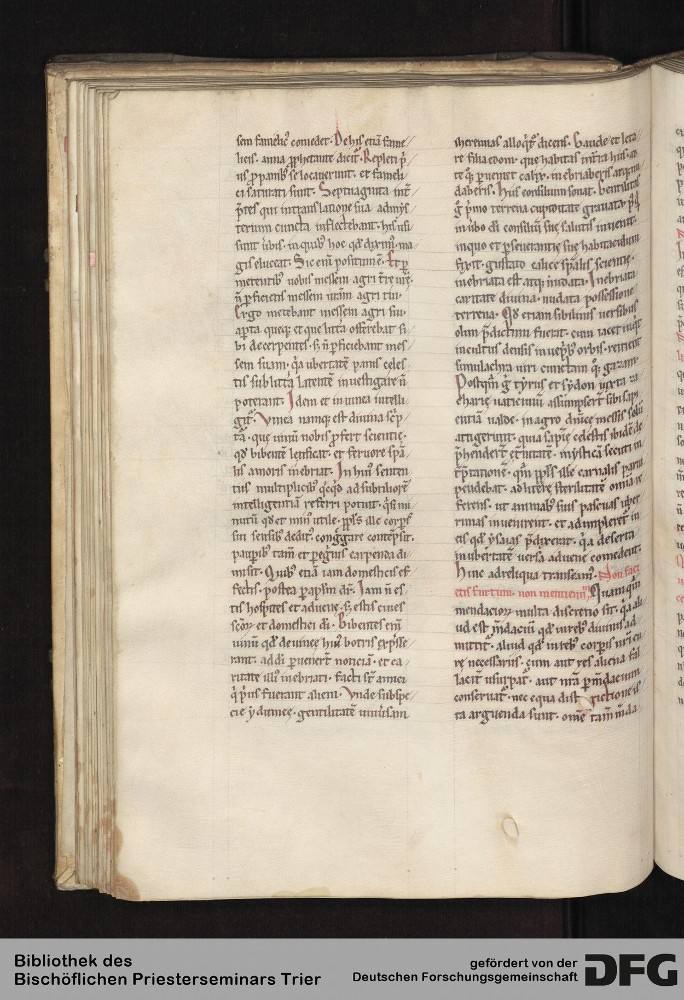 sem famelicꝰ comedet. De his etiā fame
licis. anna ꝓphetante dicit᷑. Repleti pͥ
us ꝓ panibꝰ se locauerunt. et fameli
ci saturati sunt. Septuaginta int̄
p̄tes qui in translatione sua ad mys
terium cuncta inflectebant. his usi
sunt ubis. in quibꝰ hoc qd̄ diximꝰ ma
gis eluceat. Sic eni positum ē. Et ꝑ
metentibꝰ uobis messem agri t̄re ur̄e.
ñ ꝑficietis messem ur̄am agri tui.
Ergo metebant messem agri sui
aꝑta queq; et que litt̄a offerebat si
bi decerpentes. sꝫ ñ ꝑficiebant mes
sem suam. qͥa ubertatē panis celes
tis sub litt̄a latentē inuestigare ñ
poterant. Idem et in uinea intelli
git᷑. Vinea namq; est diuina sc̄p
ta. que uinū nobis ꝓfert scientię.
qd̄ bibentē letificat. et feruore spā
lis amoris inebriat. In huiꝰ senten
tiis multiplicibꝰ qͥcqͥd ad subtiliorē
intelligentiā referri potuit. qͣsi mi
nutū qd̄ et minꝰ utile. ppl̄s ille corpͥ
sui sensibꝰ deditꝰ cong̃gare contēpsit.
pauꝑibꝰ tam̄ et ꝑegͥnis carpenda di
misit. Quibꝰ etiā iam domesticis ef
fectis. postea ꝑ apl̄m dr̄. Iam ñ es
tis hospites et aduene. sꝫ estis ciues
sc̄oꝝ et domestici dī. Bibentes eni
uinū qd̄ de uinee huiꝰ botris exp̄sse
rant. ad dī ꝑuener̄t noticiā. et ca
ritate illiꝰ inebriati. facti st̄ amici
qͥ pͥus fuerant alieni. Vnde sub spe
cie ydumee. gentilitatē uniuersam
iheremias alloqͥt᷑ dicens. Gaude et leta
re filia edom. que habitas in t̄ra hus. ad
te qͦ; ꝑueniet calix. inebriaberis atq; nu
daberis. Hus consilium sonat. Gentilitas
g̊ pͥmo terrena cupiditate grauata. pͦstqͣ
in ubo dī consiliū sue salutis inuenit.
in quo et ꝑseuerantię sue habitaculum
fixit. gustato calice spͥalis scientię.
inebriata est atq; nudata. Inebriata
caritate diuina. nudata possessione
terrena. Qd̄ etiam sibilinis uersibus
olim p̄dictum fuerat. cum iacet inqͥt
incultus densis in uepribꝰ orbis. reicient
simulachra uiri cunctam qͦ; gazam.
Postqͣm g̊ tyrus et sydon iuxta za
charie uaticiniū assumpser̄t sibi sapi
entiam ualde. in agro dnīce messis
attigerunt. quia sapię celestis ibidē
p̄hender̄t et̄nitatē. mysticā secuti in
t̄p̄tationē. qͣm ppl̄s ille carnalis parui
pendebat. ad littere sterilitatē omīa re
ferens. ut animabꝰ suis pascuas uber
rimas inuenirent. et adimpleret᷑ in
eis qd̄ ysaias p̄dixerat. qͥa deserta
in ubertatē uersa aduene comedent.
Hinc ad reliqua transeamꝰ. Non faci
etis furtum. non mentiemī. Quamqͣm
mendacioꝝ multa discretio sit. qͥa ali
ud est m̄daciū qd̄ in rebꝰ diuinis ad
mittit᷑. aliud qd̄ in rebꝰ corꝑis nr̄i cu
re necessariis. cum aut res aliena fal
laciter usurpat᷑. aut nr̄a ꝑ m̄dacium
conseruat᷑. nec equa dist rictione is
ta arguenda sunt. omē tam̄ m̄da
Bibliothek des
Bischöflichen Priesterseminars Trier
gefördert von der
Deutschen Forschungsgemeinschaft
DFG